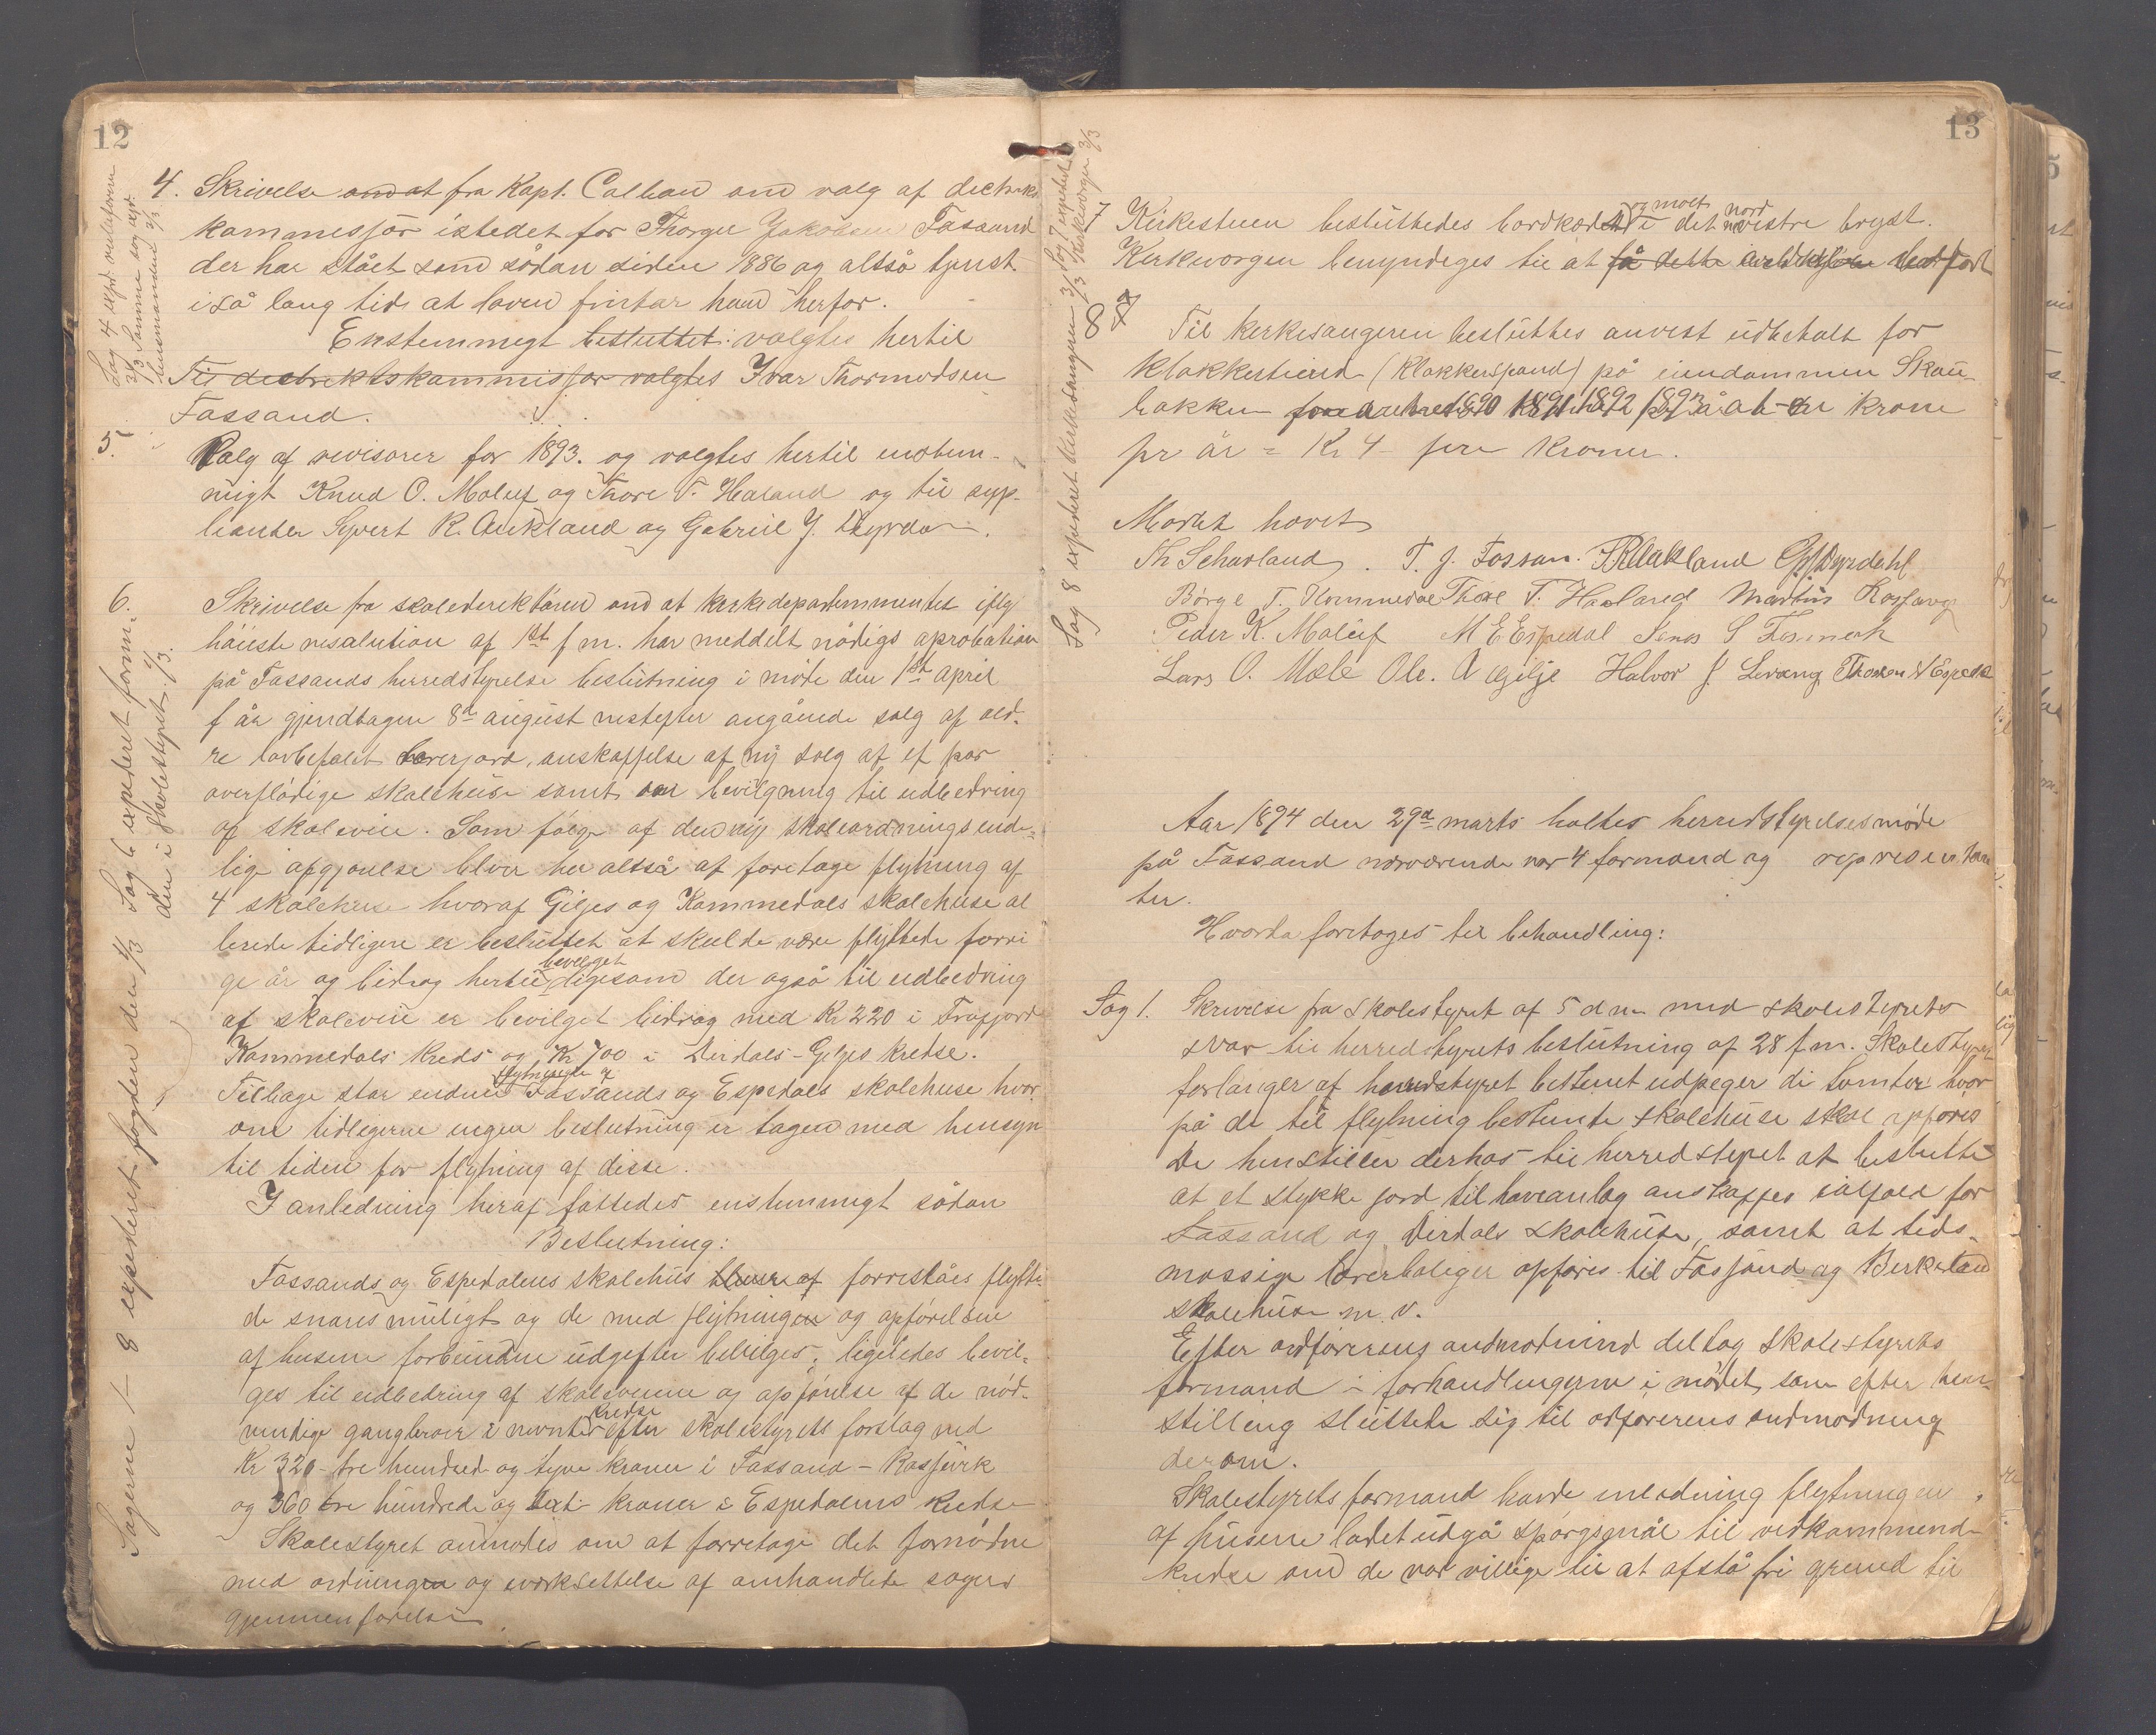 12
4. Skrivelse om at fra Kapt. Callean om valg af districts
kommisjør istedet for Thorger Jakobsen Fossand
der har stået som sådan siden 1886 og altså tjenst
i så lang tid at loven fritar ham herfor.
Enstemmigt besluttet: valgtes hertil
Til distriktskommisjør valgtes Ivar Thormodsen
Fossand.
5. Valg af revisorer for 1893. og valgtes hertil enstem-
migt Knud O. Moluf og Thore T. Haland og til sup-
leanter Syvert R. Aukland og Gabriel J. Dyrda
6. Skrivelse fra skoledirektøren om at kirkedepartementet iflg
høieste resolution af 1st f m. har meddelt nødigs aprobation
på Fossands herredstyrelse beslutning i møde den 1st april
f år gjendtagen 8d august nestefter angående salg af æld-
re lovbefalet lærerjord, anskaffelse af ny salg af et par
overflødige skolehuse samt om bevilgning til udbedring
af skoleveie. Som følge af den nye skoleordnings ende-
lige afgjørelse bliver her altså at foretage flytning af
4 skolehuse hvoraf Giljes og Kommedals skolehuse al
lerede tidligere er besluttet at skulde være flyttede forri
ge år og bidrag hertil bevilget ligesom der også til udbedring
af skoleveie er bevilget bidrag med Kr 220 i Frafjord
Kommedals kreds og Kr 700 i Dirdals-Giljes kredse.
Tilbage står endnu flytningen af Fossands og Espedals skolehuse hvor
om tidligere ingen beslutning er tagen med hensyn
til tiden for flytning af disse.
I anledning heraf fattedes enstemmigt sådan
Beslutning:
Fossands og Espedalens skolehus bliver af forreståes flytte
de snares muligt og de med flytningen og opførelsen
af husene forbundne udgifter bevilges; ligeledes bevil-
ges til udbedring af skoleveiene og opførelse af de nød-
vendige gangbroer i nevnte kredse efter skolestyrets forslag med
Kr 320 - tre hundrede og tyve kroner i Fossand - Rosfjurk
og 360 tre hundrede og sexti kroner i Espedalens kredse
Skolestyret anmodes om at forretage det fornødne
med ordningen og iverksettelse af omhandlede sagers
gjennemførelse
Sag 4 expd. ordeførern
2/3 Samme sag exp.
lensmanden 2/3
Sag 6 expederet form-
den i skolestyret 1/3.
Sagerne 1 - 8 expederet fogden den 1/3
13
Sag 7 expederet
3/3 Kirkeværgen 3/3
Sag 8 expederet kirkesangeren 3/3
7 Kirkestuen besluttedes bordklædt og malt i det nord vestre bryst.
Kirkeværgen bemyndiges til at få dette utført
8 Til kirkesangeren besluttes anvist udbetalt for
klokkertiend (klokkerspand) på eiendommen Skau-
bakken for årene 1890 1891 1892 1893 a en krone
pr år = Kr 4 - fire kroner.
Mødet hævet
Th Scharland. T. J. Fossan. R Aukland G J Dyrdahl
Børge T. Kommedal Thore T. Haaland Martin Rosfavg
Peder K. Maluf M E Espedal Jens S Fosmork
Lars O. Mæle Ole. A Gilje Halvor J. Levang Thorsen N Espeda
Aar 1894 den 29d marts holtes herredstyrelsesmøde
på Fossand nærværende var 4 formænd og representan
ter.
Hvorda foretoges til behandling:
Sag 1. Skrivelse fra skolestyret af 5 d m. med skolestyrets
svar til herredstyrets beslutning af 28 f m. Skolestyret
forlanger af herredstyret bestemt udpeger de tomter hvor
på de til flytning bestemte skolehuse skal opføres
De henstiller derhos til herredstyret at beslutte
at et stykke jord til haveanlæg anskaffes ialfald for
Fossand og Dirdals skolehuse, samt at tids-
mæssige lærerboliger opføres til Fossand og Berkeland
skolehuse m. v.
Efter ordførerens andmodnind deltog skolestyrets
formand i forhandlingerne i mødet, som efter hen-
stilling sluttede sig til ordførerens andmodning
derom.
Skolestyrets formand havde i anledning flytningen
af husene ladet udgå spørgsmål til vedkommende
kredse om de var villige til at afstå fri grund til